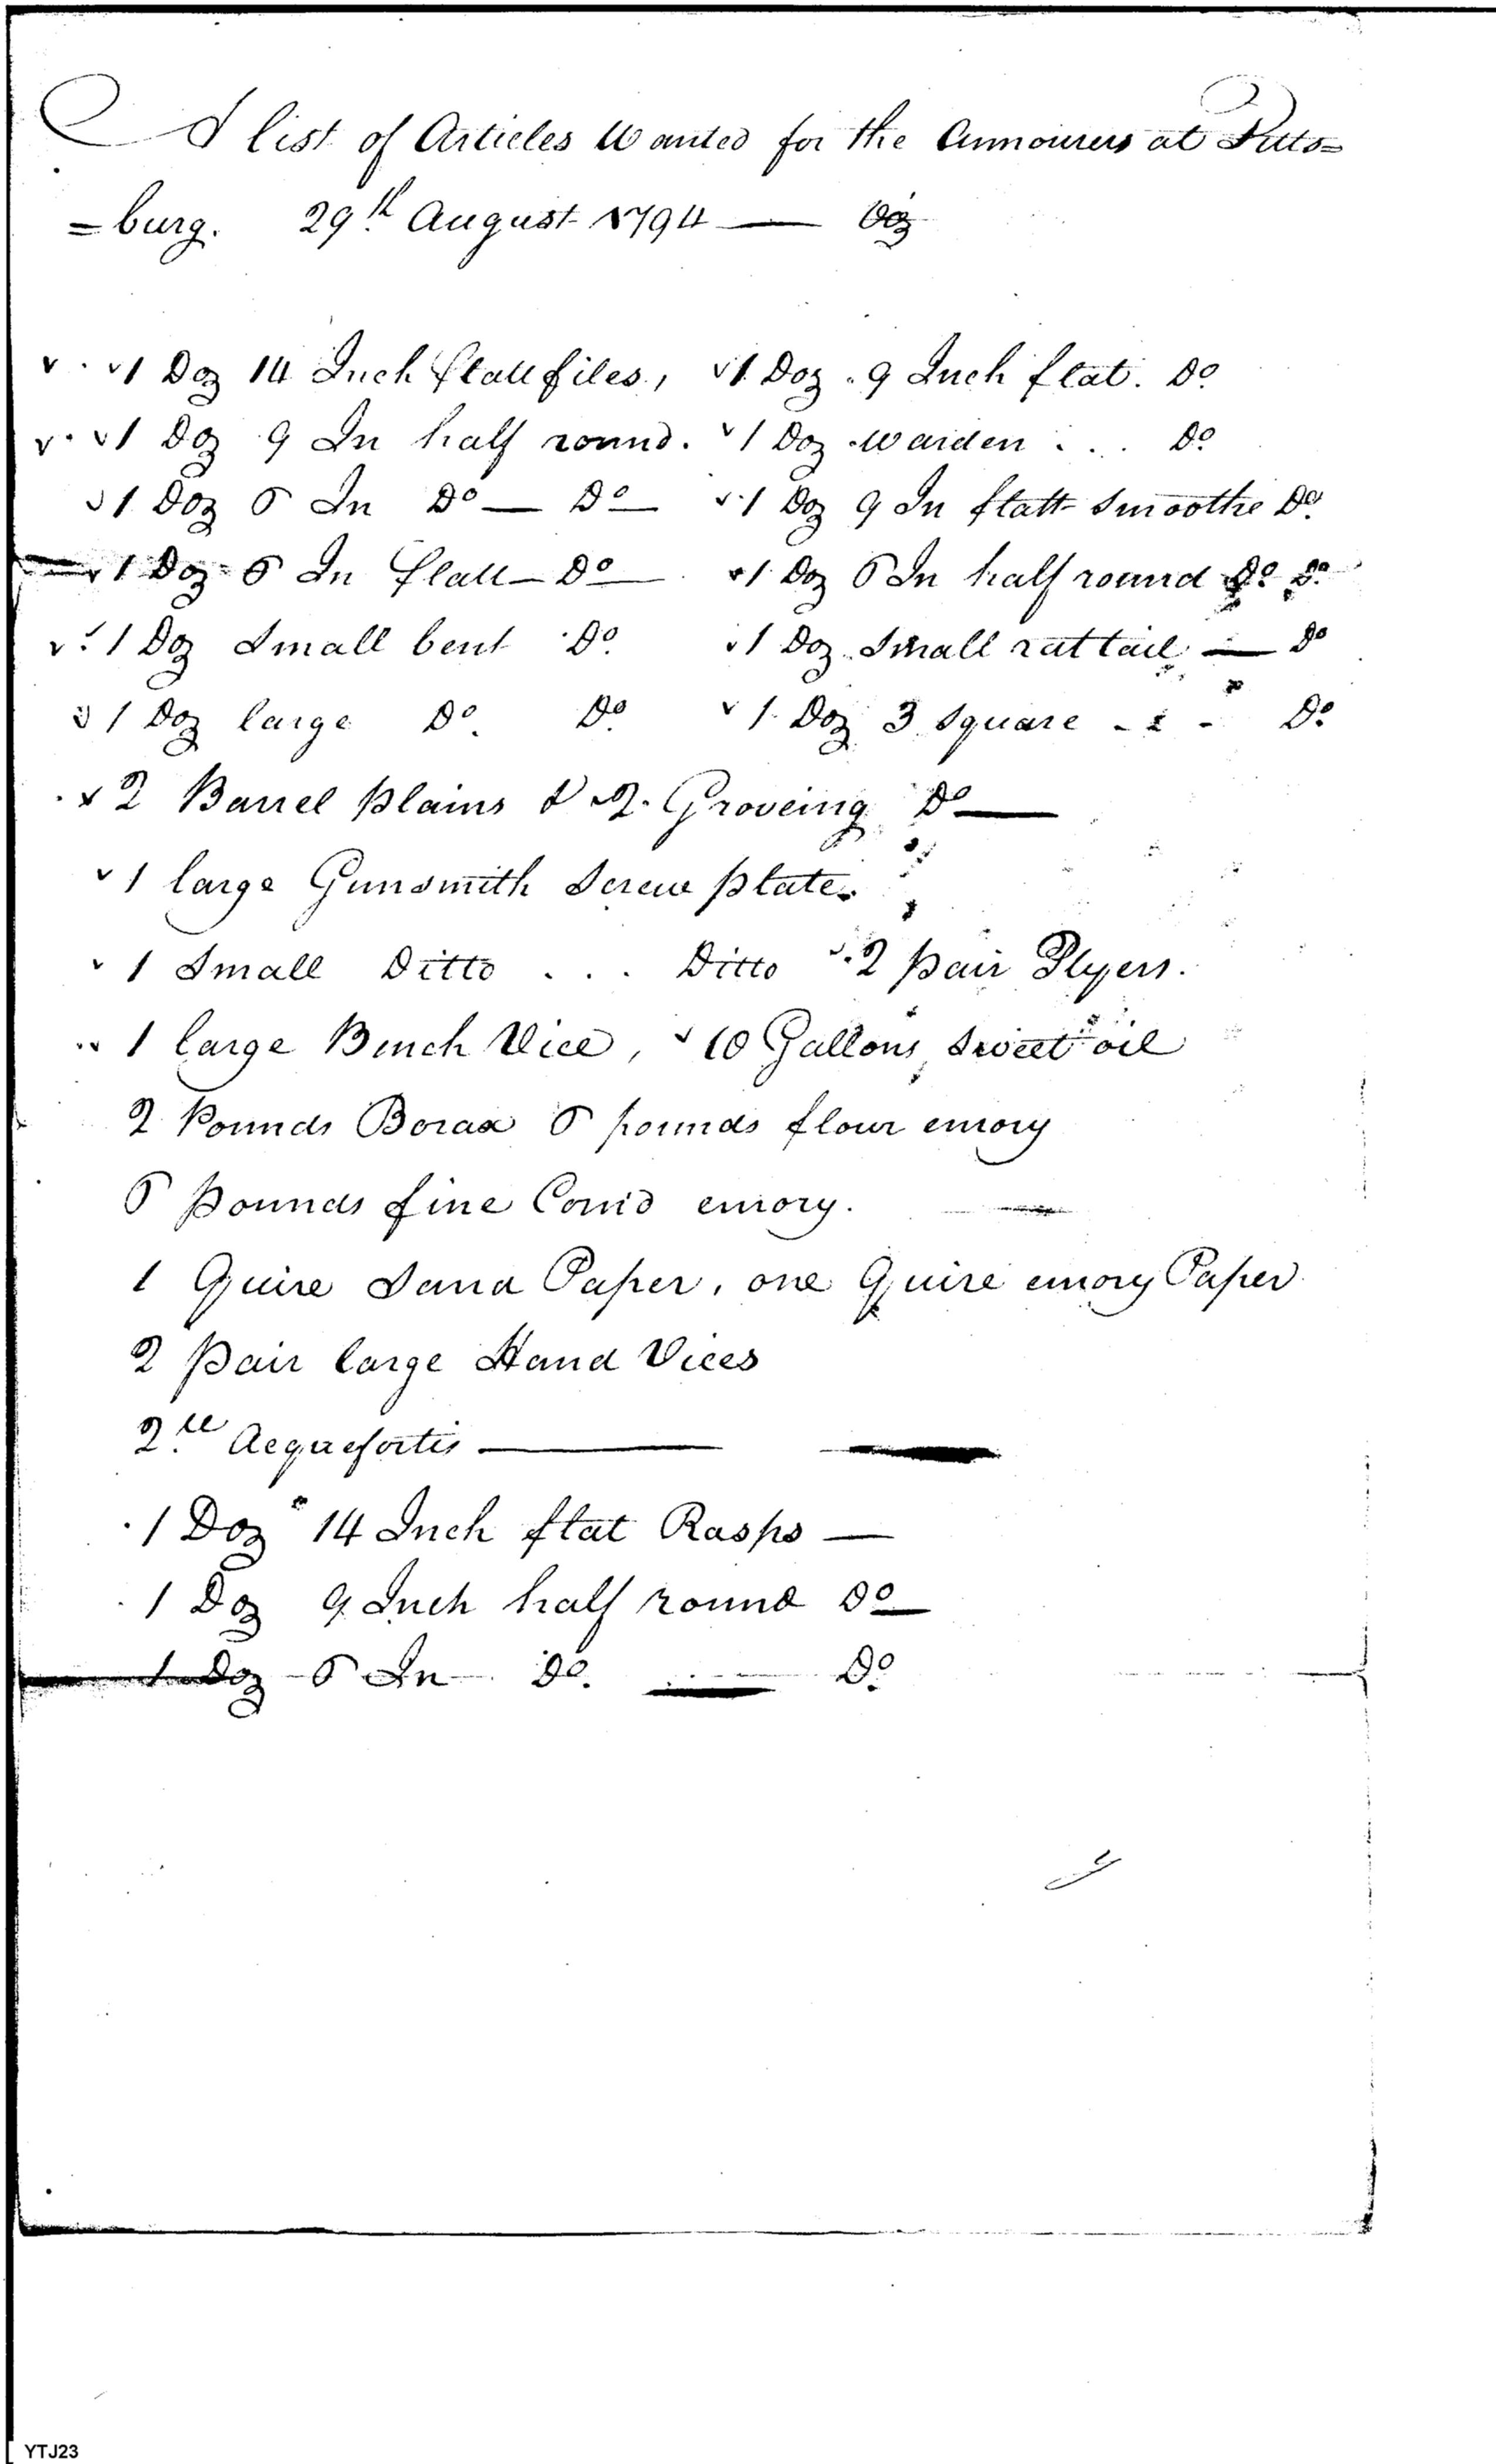 A list of Articles Wanted for the Armourers at Pitts=
=burg. 29th August 1794 — Viz
1 Doz 14 Inch flatt files, 1 Doz 9 Inch flat. Do
1 Doz 9 In half round. 1 Doz Warden ... Do
1 Doz 6 In Do — Do 1 Doz 9 In flatt Smoothe Do
1 Doz 6 In flatt — Do 1 Doz 6 In half round Do Do
1 Doz Small bent Do 1 Doz Small rattail — Do
1 Doz large Do Do 1 Doz 3 Square - - - Do
2 Barrel plains & 2 Groveing Do —
1 large Gunsmith Screw plate.
1 Small Ditto ... Ditto 2 pair Plyers.
1 large Bench Vice, 10 Gallons Sweet oil
2 Pounds Borax 6 pounds flour emory
6 pounds fine emory.
1 Quire Sand Paper, one Quire emory Paper
2 pair large Hand Vices
2 ll Aequefortis —
1 Doz 14 Inch flat Rasps —
1 Doz 9 Inch half round Do
1 Doz 6 In Do. — Do
YTJ23